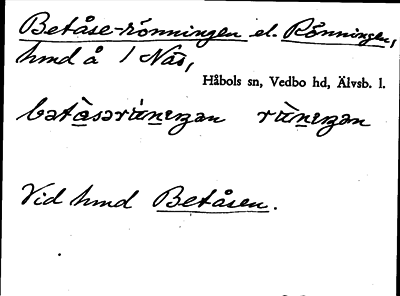 Betåse-rönningen el. Rönningen,
hmd å 1 Näs,
Håbols sn, Vedbo hd, Älvsb. l.
Vid hmd Betåsen.